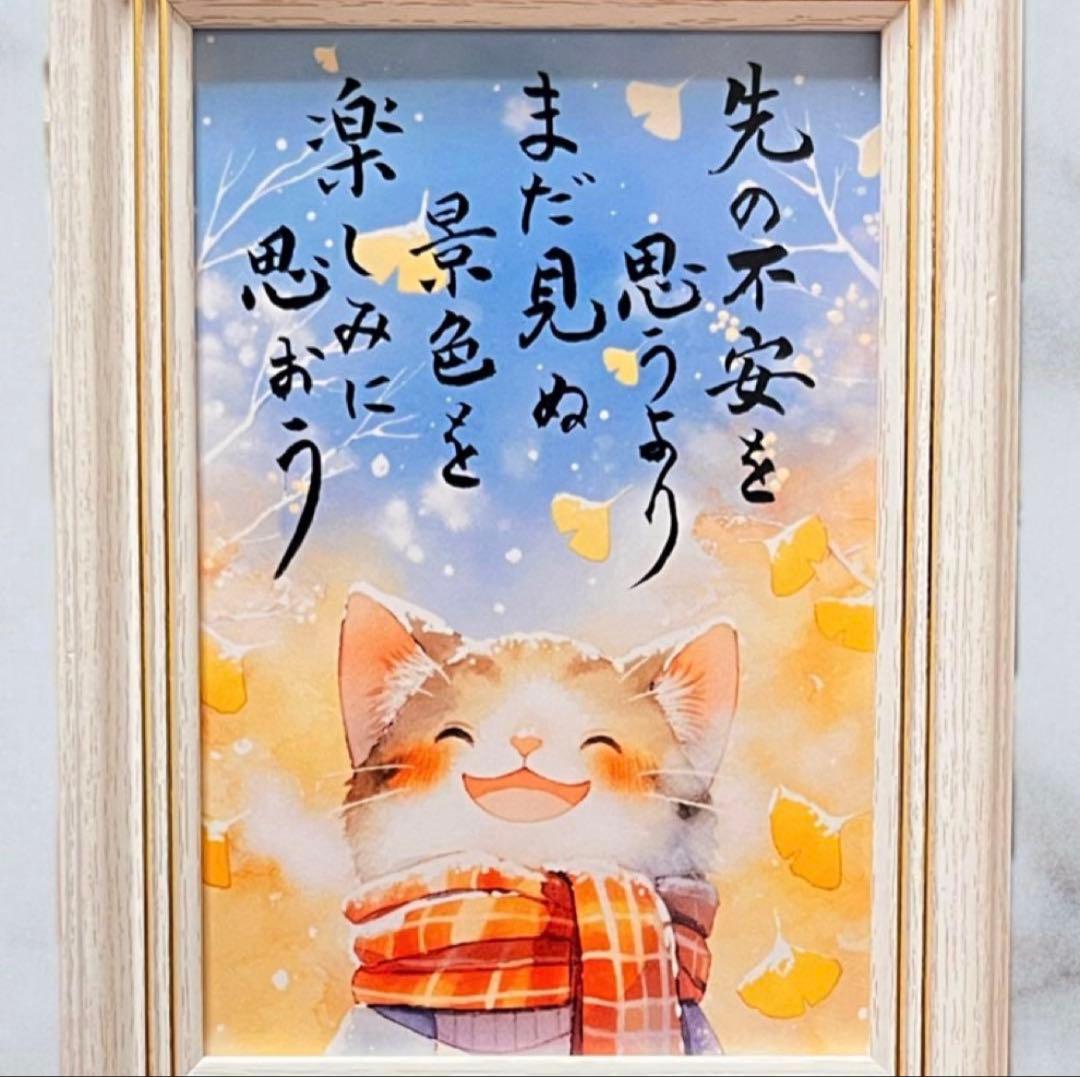 先の不安を
思うより
まだ見ぬ
景色を
楽しみに
思おう